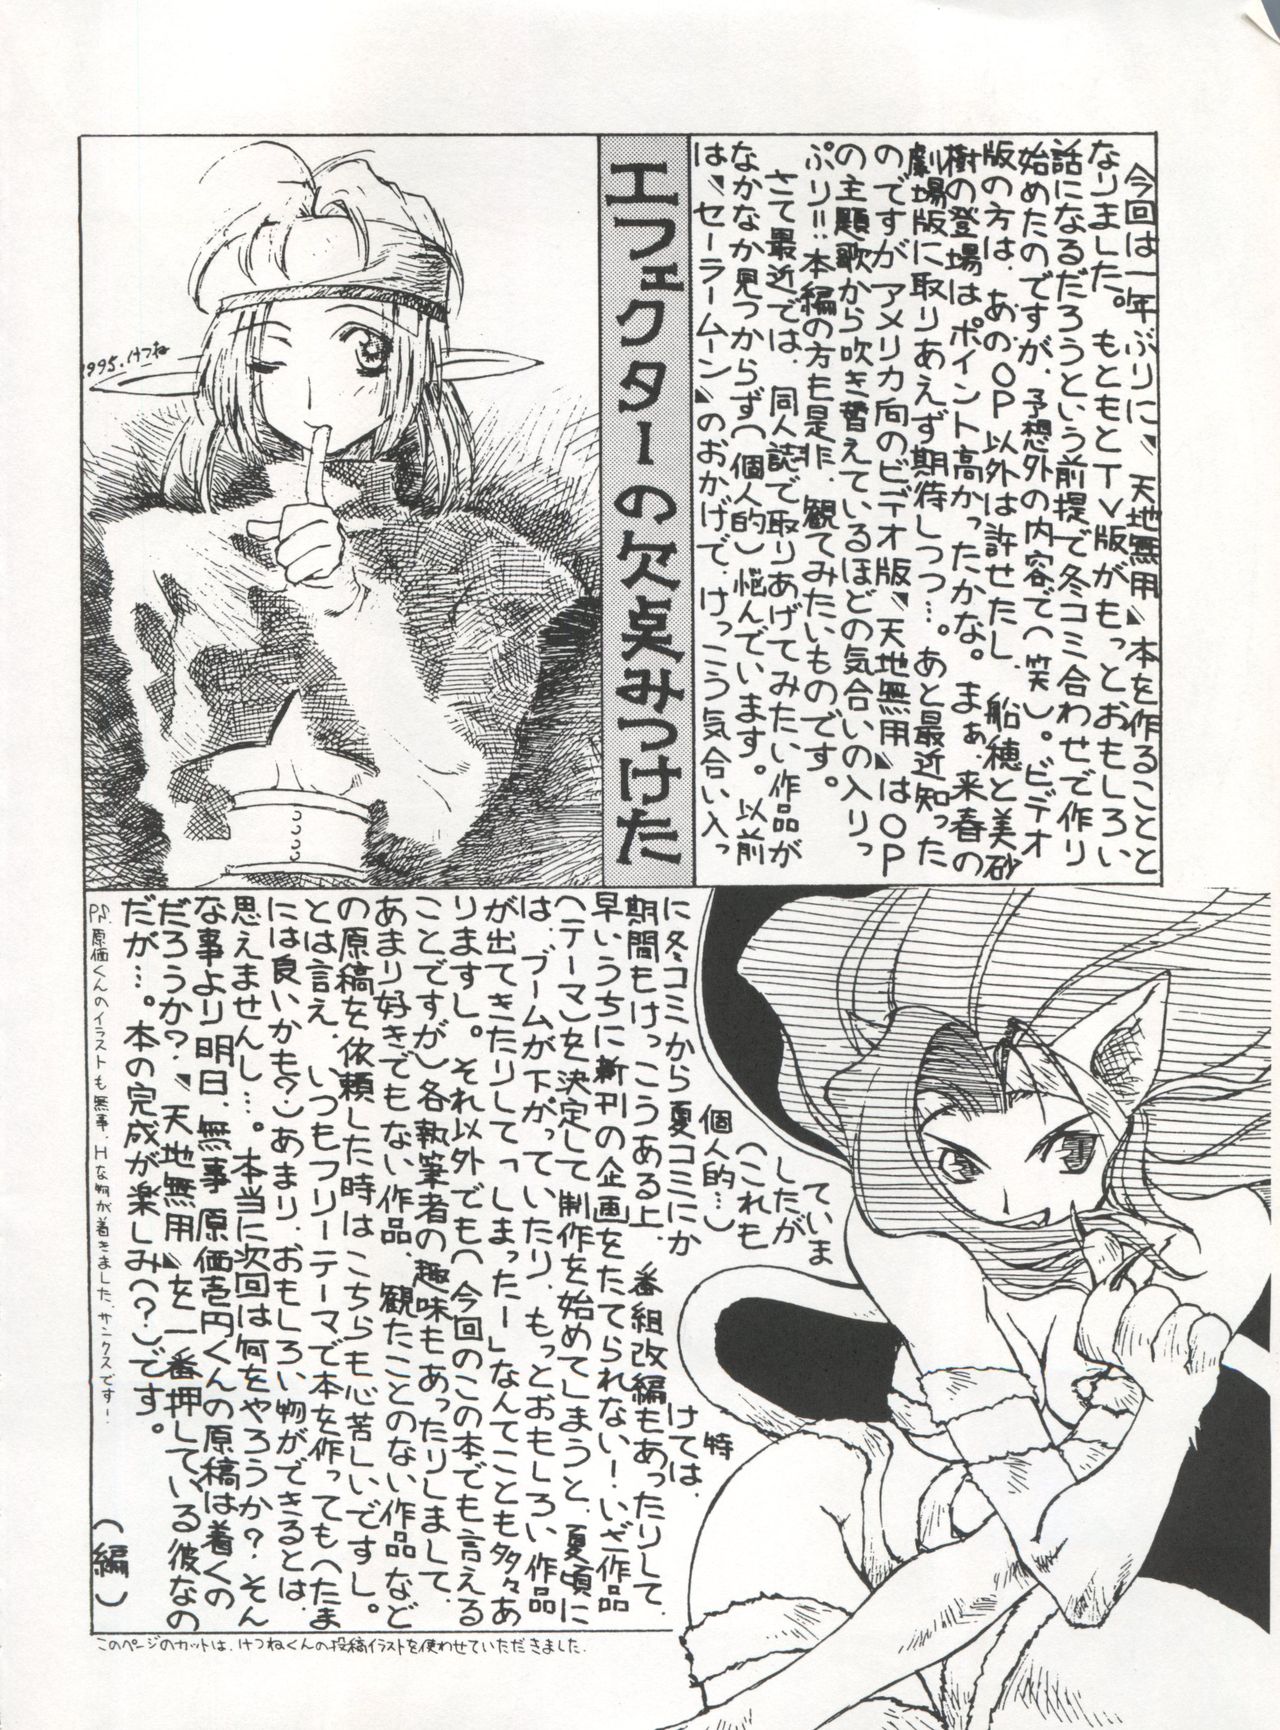 エフェクターの欠点みつけた
今回は一年ぶりに〝天地無用〟本を作ることと
なりました。もともとTV版がもっとおもしろい
話になるだろうという前提で冬コミ合わせで作り
始めたのですが、予想外の内容で(笑)。ビデオ
版の方は、あのOP以外は許せたし、船穂と美砂
樹の登場はポイント高かったかな。まぁ、来春の
劇場版に取りあえず期待しつつ…。あと最近知った
のですがアメリカ向のビデオ版〝天地無用〟はOP
の主題歌から吹き替えているほどの気合いの入りっ
ぷり!!本編の方も是非、観てみたいものです。
さて最近では、同人誌で取りあげてみたい作品が
なかなか見つからず(個人的)悩んでいます。以前
は〝セーラームーン〟のおかげで、けっこう気合い入っ
ていま
したが
(これも
個人的…)
に冬コミから夏コミにか
けては、
特
期間もけっこうある上、番組改編もあったりして、
早いうちに新刊の企画をたてられない!いざ作品
(テーマ)を決定して制作を始めてしまうと、夏頃に
は、ブームが下がっていたり、もっとおもしろい作品
が出てきたりしてっしまったー!なんてことも多々あ
りますし。それ以外でも(今回のこの本でも言える
ことですが)各執筆者の趣味もあったりしまして、
あまり好きでもない作品、観たことのない作品など
の原稿を依頼した時はこちらも心苦しいですし。
とは言え、いつもフリーテーマで本を作っても(たま
には良いかも?)あまり、おもしろい物ができるとは、
思えませんし…。本当に次回は何をやろうか?.そん
な事より明日、無事、原価壱円くんの原稿は着くの
だろうか?.〝天地無用〟を一番押している彼なの
だが…。本の完成が楽しみ(?)です。
(編)
P.S.原価くんのイラストも無事、Hな物が着きました、サンクスです!
このページのカットは、けつねくんの投稿イラストを使わせていただきました.
1995.けつね